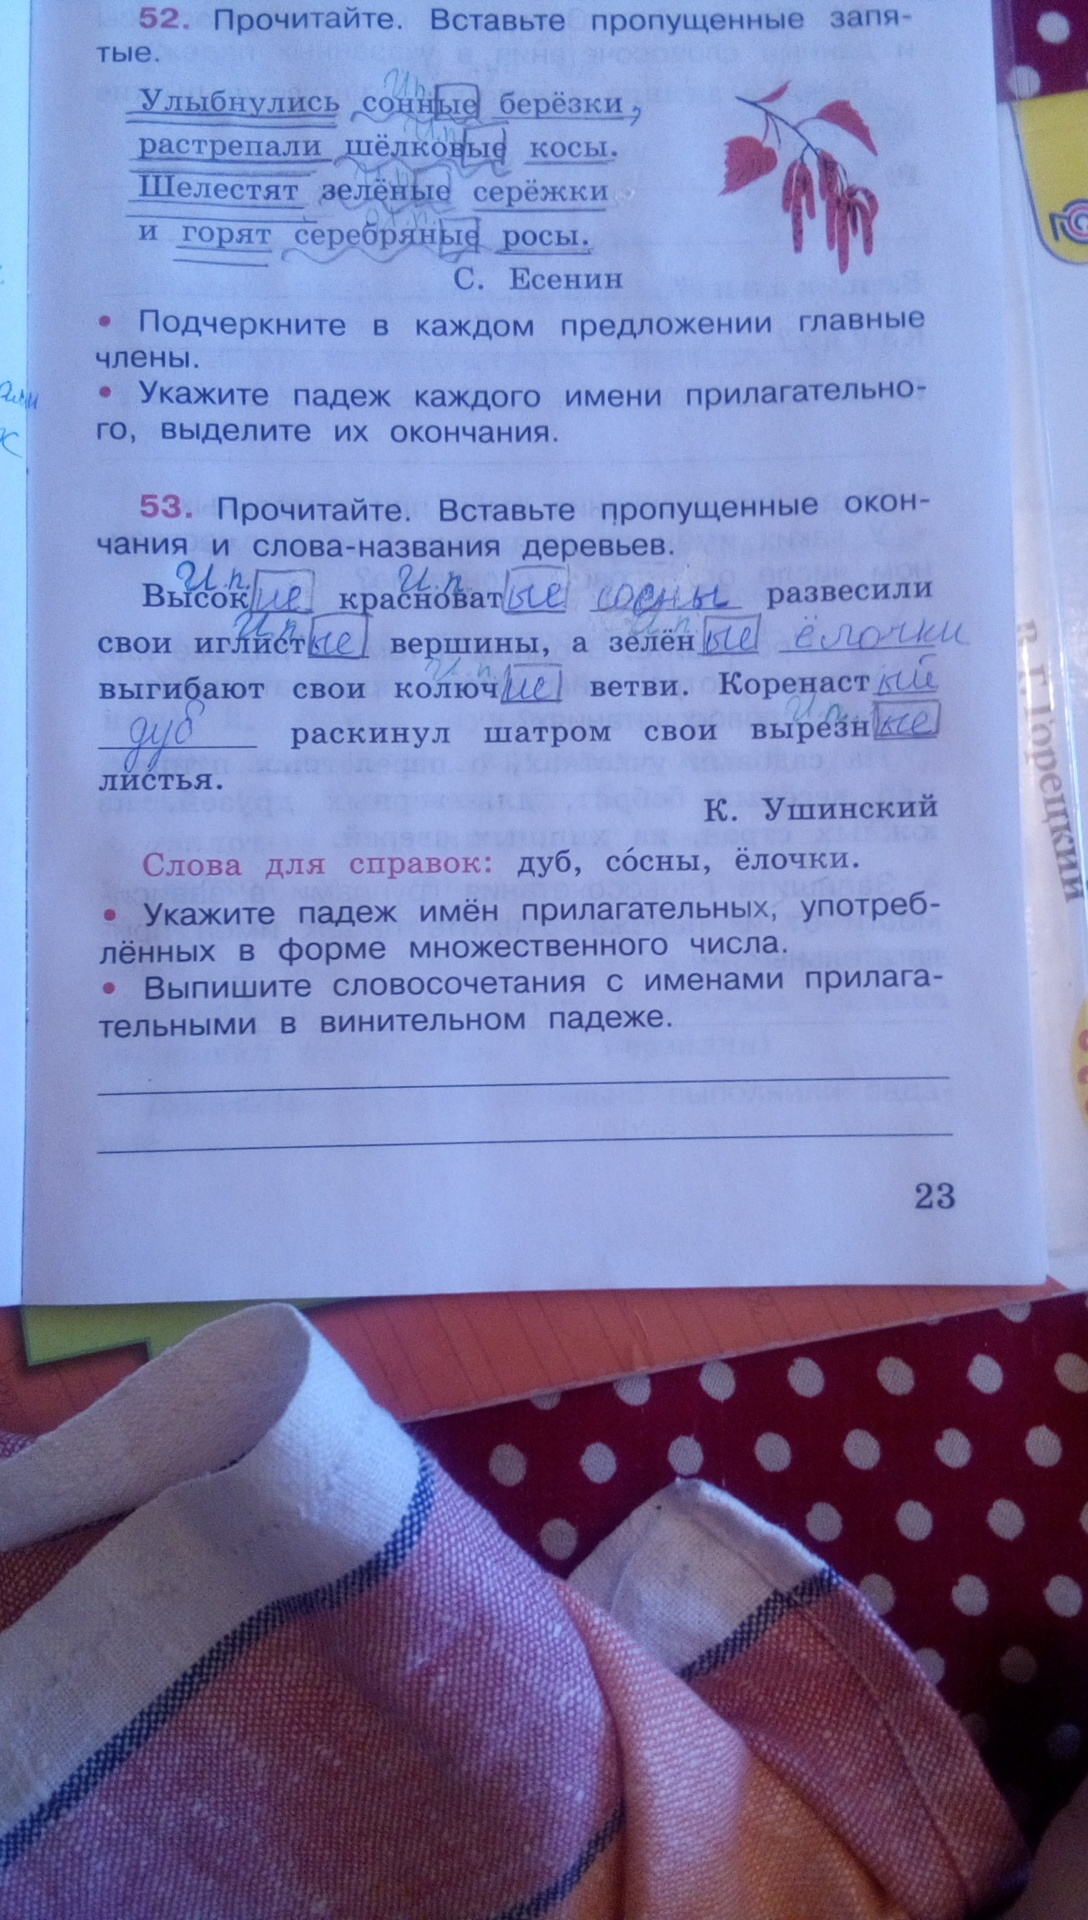 52. Прочитайте. Вставьте пропущенные запя-
тые.
И.п.
Улыбнулись сонные берёзки,
И.п.
растрепали шёлковые косы.
Шелестят зелёные серёжки
и горят серебряные росы.
С. Есенин
• Подчеркните в каждом предложении главные
члены.
• Укажите падеж каждого имени прилагательно-
го, выделите их окончания.
53. Прочитайте. Вставьте пропущенные окон-
чания и слова-названия деревьев.
И.п. И.п.
Высокие красноватые сосны развесили
И.п. И.п.
свои иглистые вершины, а зелёные ёлочки
И.п.
выгибают свои колючие ветви. Коренастый
И.п.
дуб раскинул шатром свои вырезные
листья.
К. Ушинский
Слова для справок: дуб, со́сны, ёлочки.
• Укажите падеж имён прилагательных, употреб-
лённых в форме множественного числа.
• Выпишите словосочетания с именами прилага-
тельными в винительном падеже.
23
В. Г. Горецкий